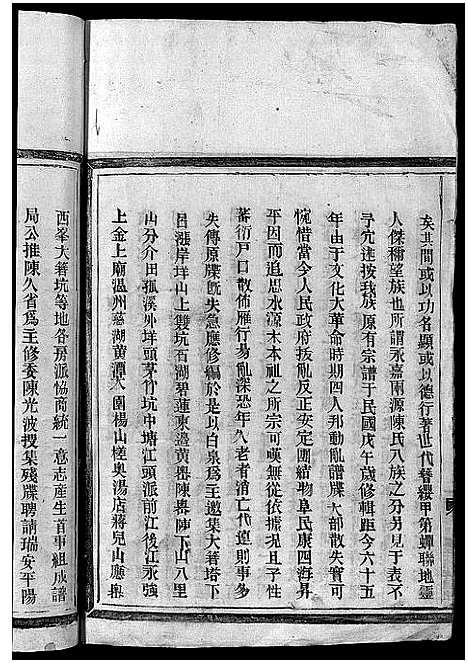 矣其間或以功名顯或以德行著世代簪纓甲第蟬聯地靈
人傑稱望族也所謂永嘉兩源陳氏八族之分另見于表不
寻冗迬按我族原有宗譜于民國戊午歲修輯距今六十五
年由于文化大革命時期四人邦動亂譜牒大部散失實可
惋惜當今人民政府拨亂反正安定團結物阜民康四海昇
平因而追思水源木本祖之所宗可嘆無從依據况且子性
蕃衍戸口散佈雁行易亂深恐年久老者消亡代遠則事多
失傳原牒既失急應修編於是以白泉爲主邀集大箬塔下
呂漈岸垟山上雙坑石湖碧蓮東邊黄嶴陳嶴陳下山八里
山分介田孤溪外垟頭茅竹坑中塘江頭派前江後江永強
上金上廟溫州慈湖黄潭入園楊山槎奧湯店蔣兒山廳嶴
西峯大箬坑等地各房派協商統一意志産生首事組成譜
局公推陳久省爲主修委陳光波搜集殘牒聘請瑞安平陽